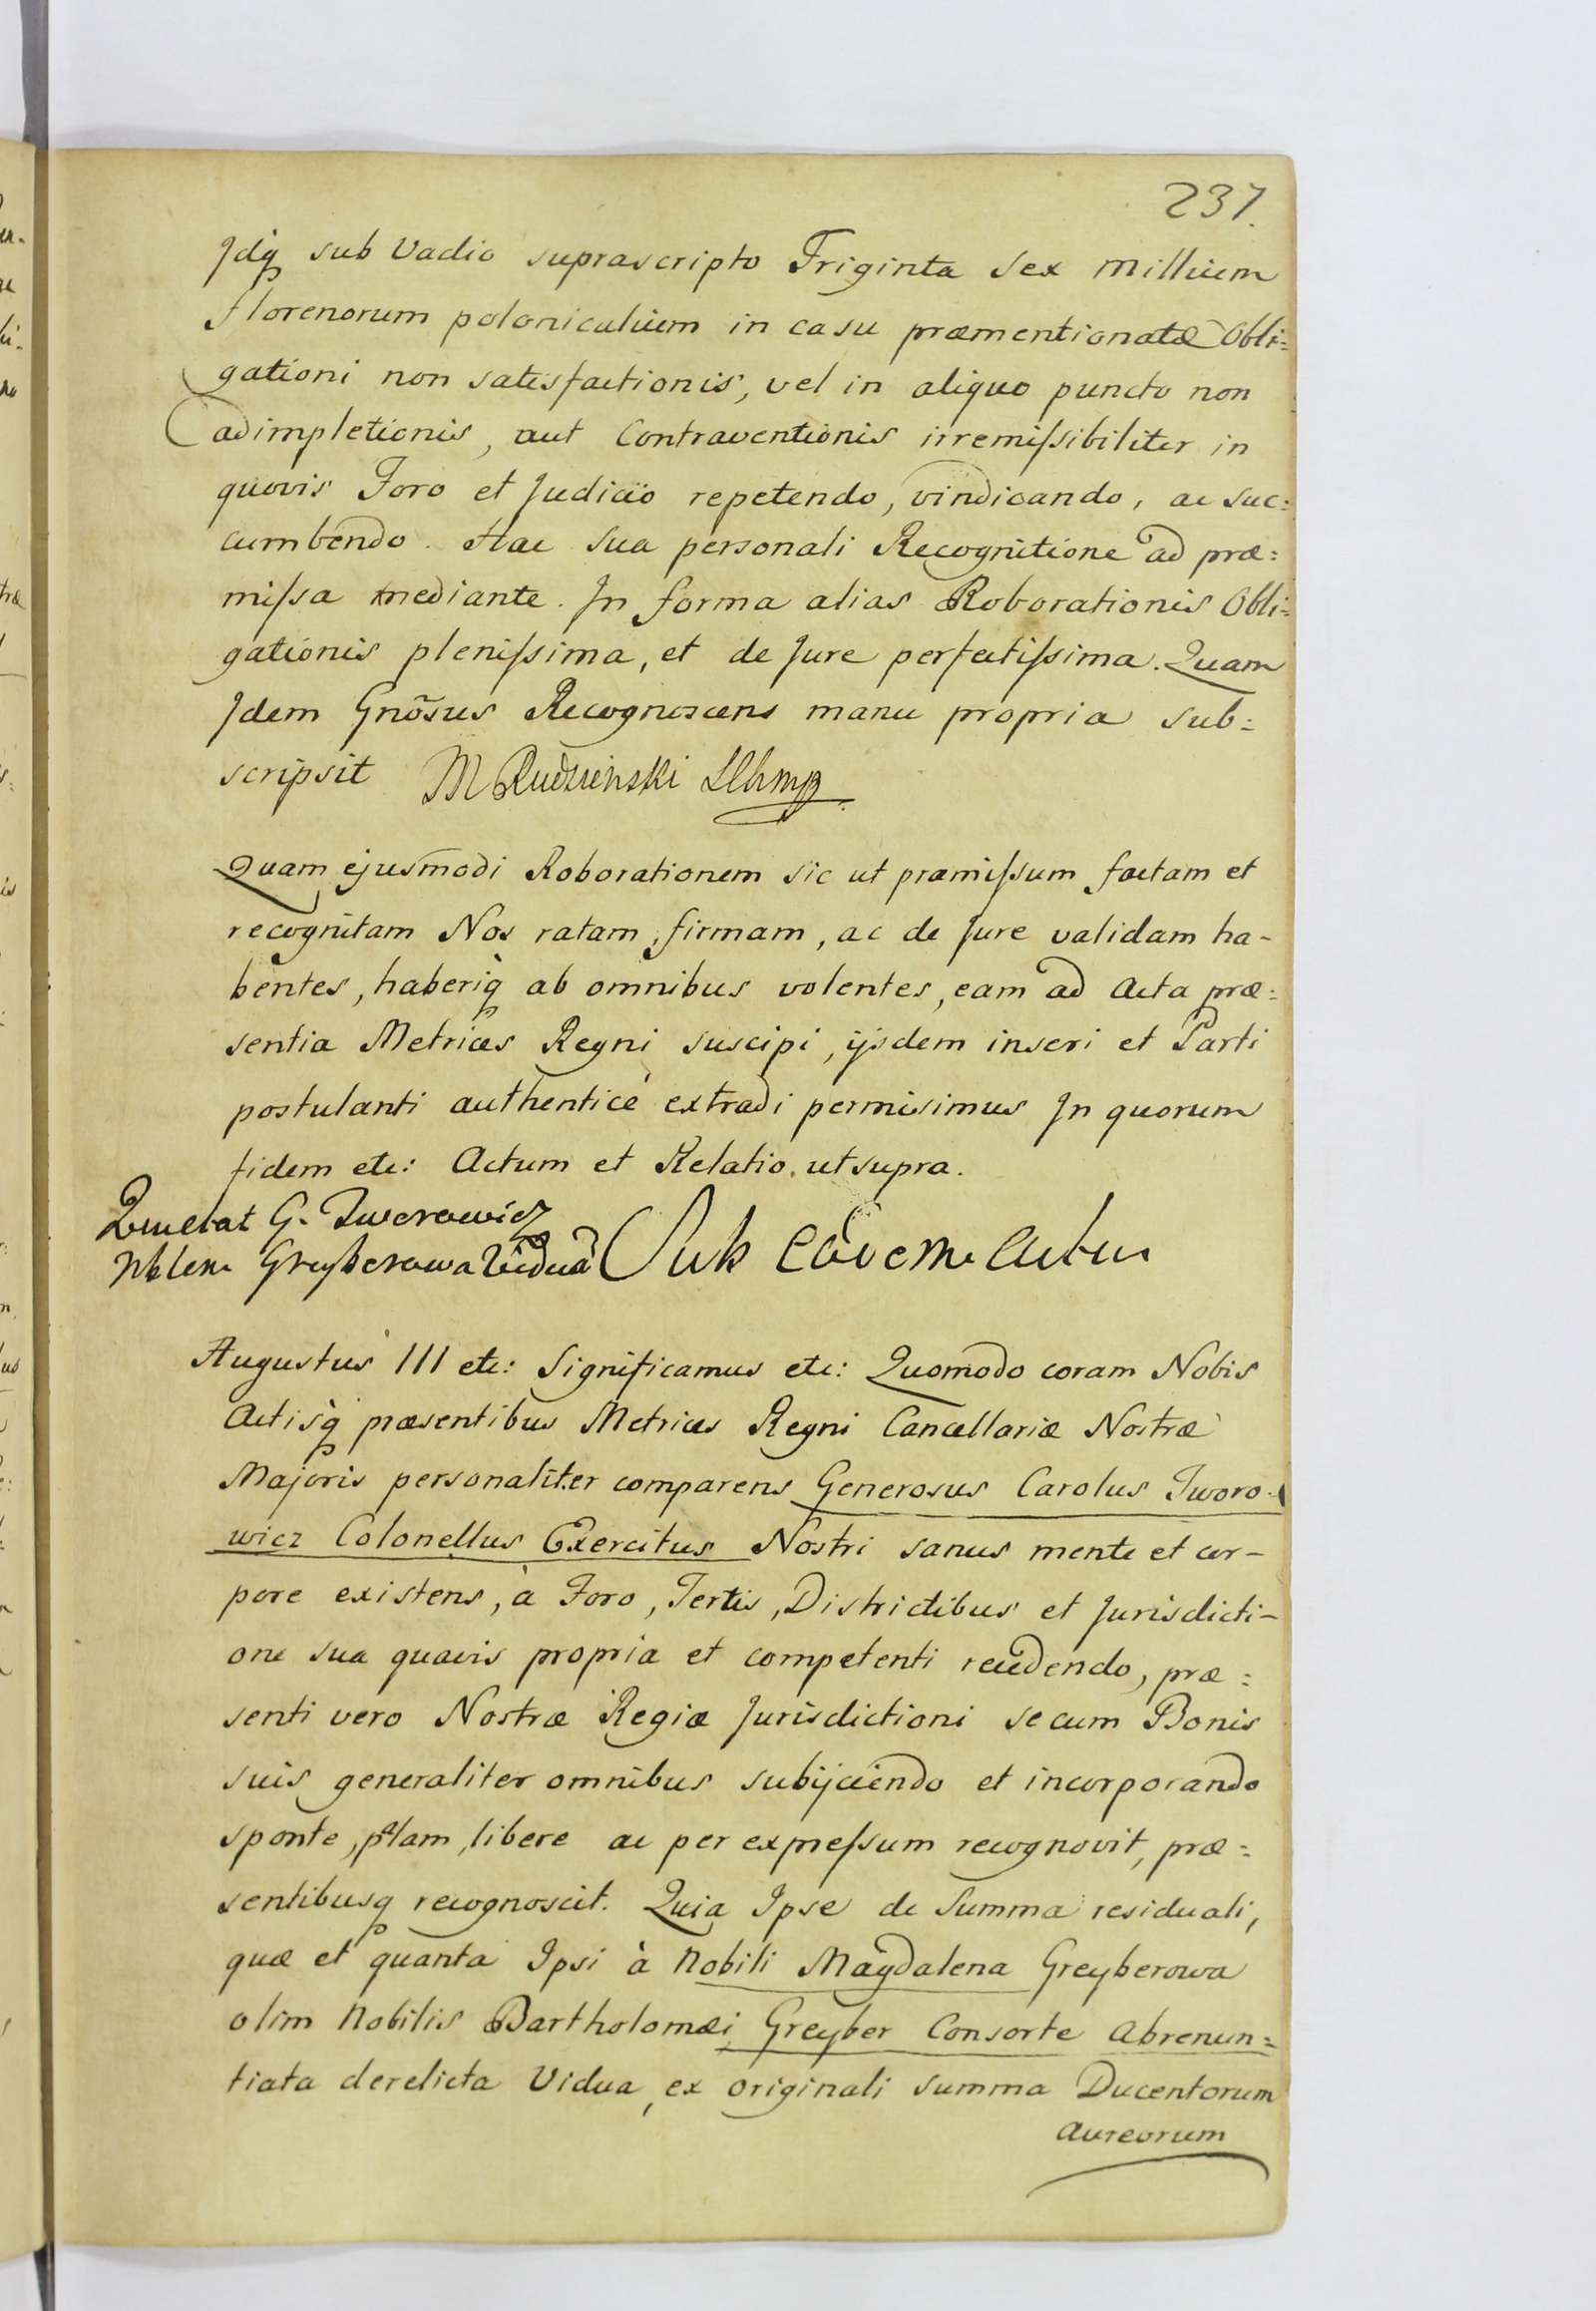 237.
Jdq sub Vadio suprascripto Triginta Sex Millium
florenorum polonicalium in casu præmentionatæ Obli=
gationi non satisfactionis, vel in aliquo puncto non
adimpletionis, aut Contraventionis irremissibiliter in
quovis Foro et Judicio repetendo, vindicando, ac suc=
cumbendo. Hac sua personali Recognitione ad præ=
missa mediante. Jn forma alias Roborationis Obli=
gationis plenissima, et de Jure perfectissima. Quam
Jdem Gnõsus Recognoscens manu propria sub=
scripsit M Rudzienski
Quam ejusmodi Roborationem sic ut præmissum factam et
recognitam Nos ratam, firmam, ac de Jure validam ha-
bentes, haberiq ab omnibus volentes, eam ad Acta præ=
sentia Metrices Regni suscipi, ijsdem inseri et Parti
postulanti authenticè extradi permisimus Jn quorum
fidem etc: Actum et Relatio. ut supra.
G. Tworowicz
Greyberowa Viduã Sub eodem Actu
Augustus III etc: Significamus etc: Quomodo coram Nobis
Actisq præsentibus Metrices Regni Cancellariæ Nostræ
Majoris personaliter comparens Generosus Carolus Tworo-
wicz Colonellus Exercitus Nostri sanus mente et cor-
pore existens, à Foro, Tertis, Districtibus et Jurisdicti-
one sua quavis propria et competenti recedendo, præ=
senti vero Nostræ Regiæ Jurisdictioni se cum Bonis
suis generaliter omnibus subijciendo et incorporando
sponte, plam, libere ac per expressum recognovit, præ=
sentibusq recognoscit. Quia Ipse de Summa residuali,
quæ et quanta Ipsi à Nobili Magdalena Greyberowa
olim Nobilis Bartholomæi Greyber Consorte Abrenun=
tiata derelicta Vidua, ex originali summa Ducentorum
Aureorum